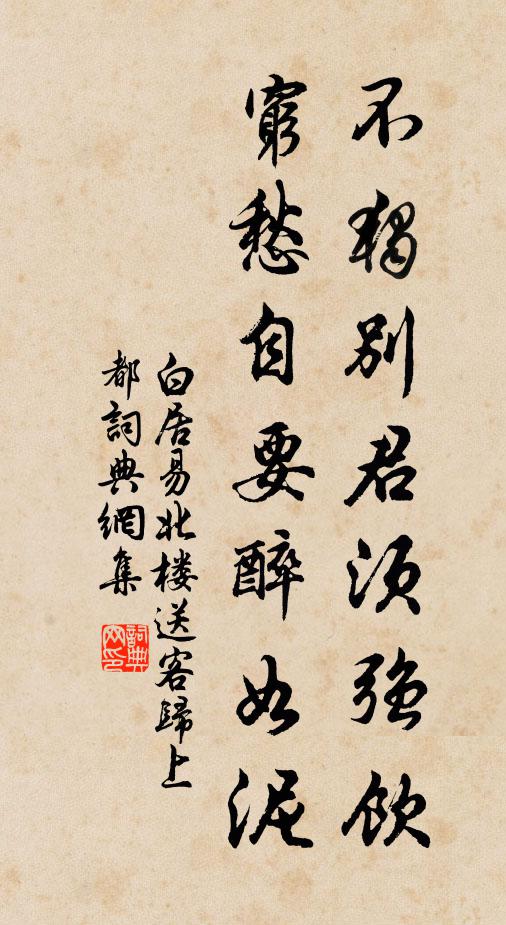 不獨別君須強飲
窮愁自要醉如泥
白居易北楼送客歸上
都詞典網集
詞典
网印